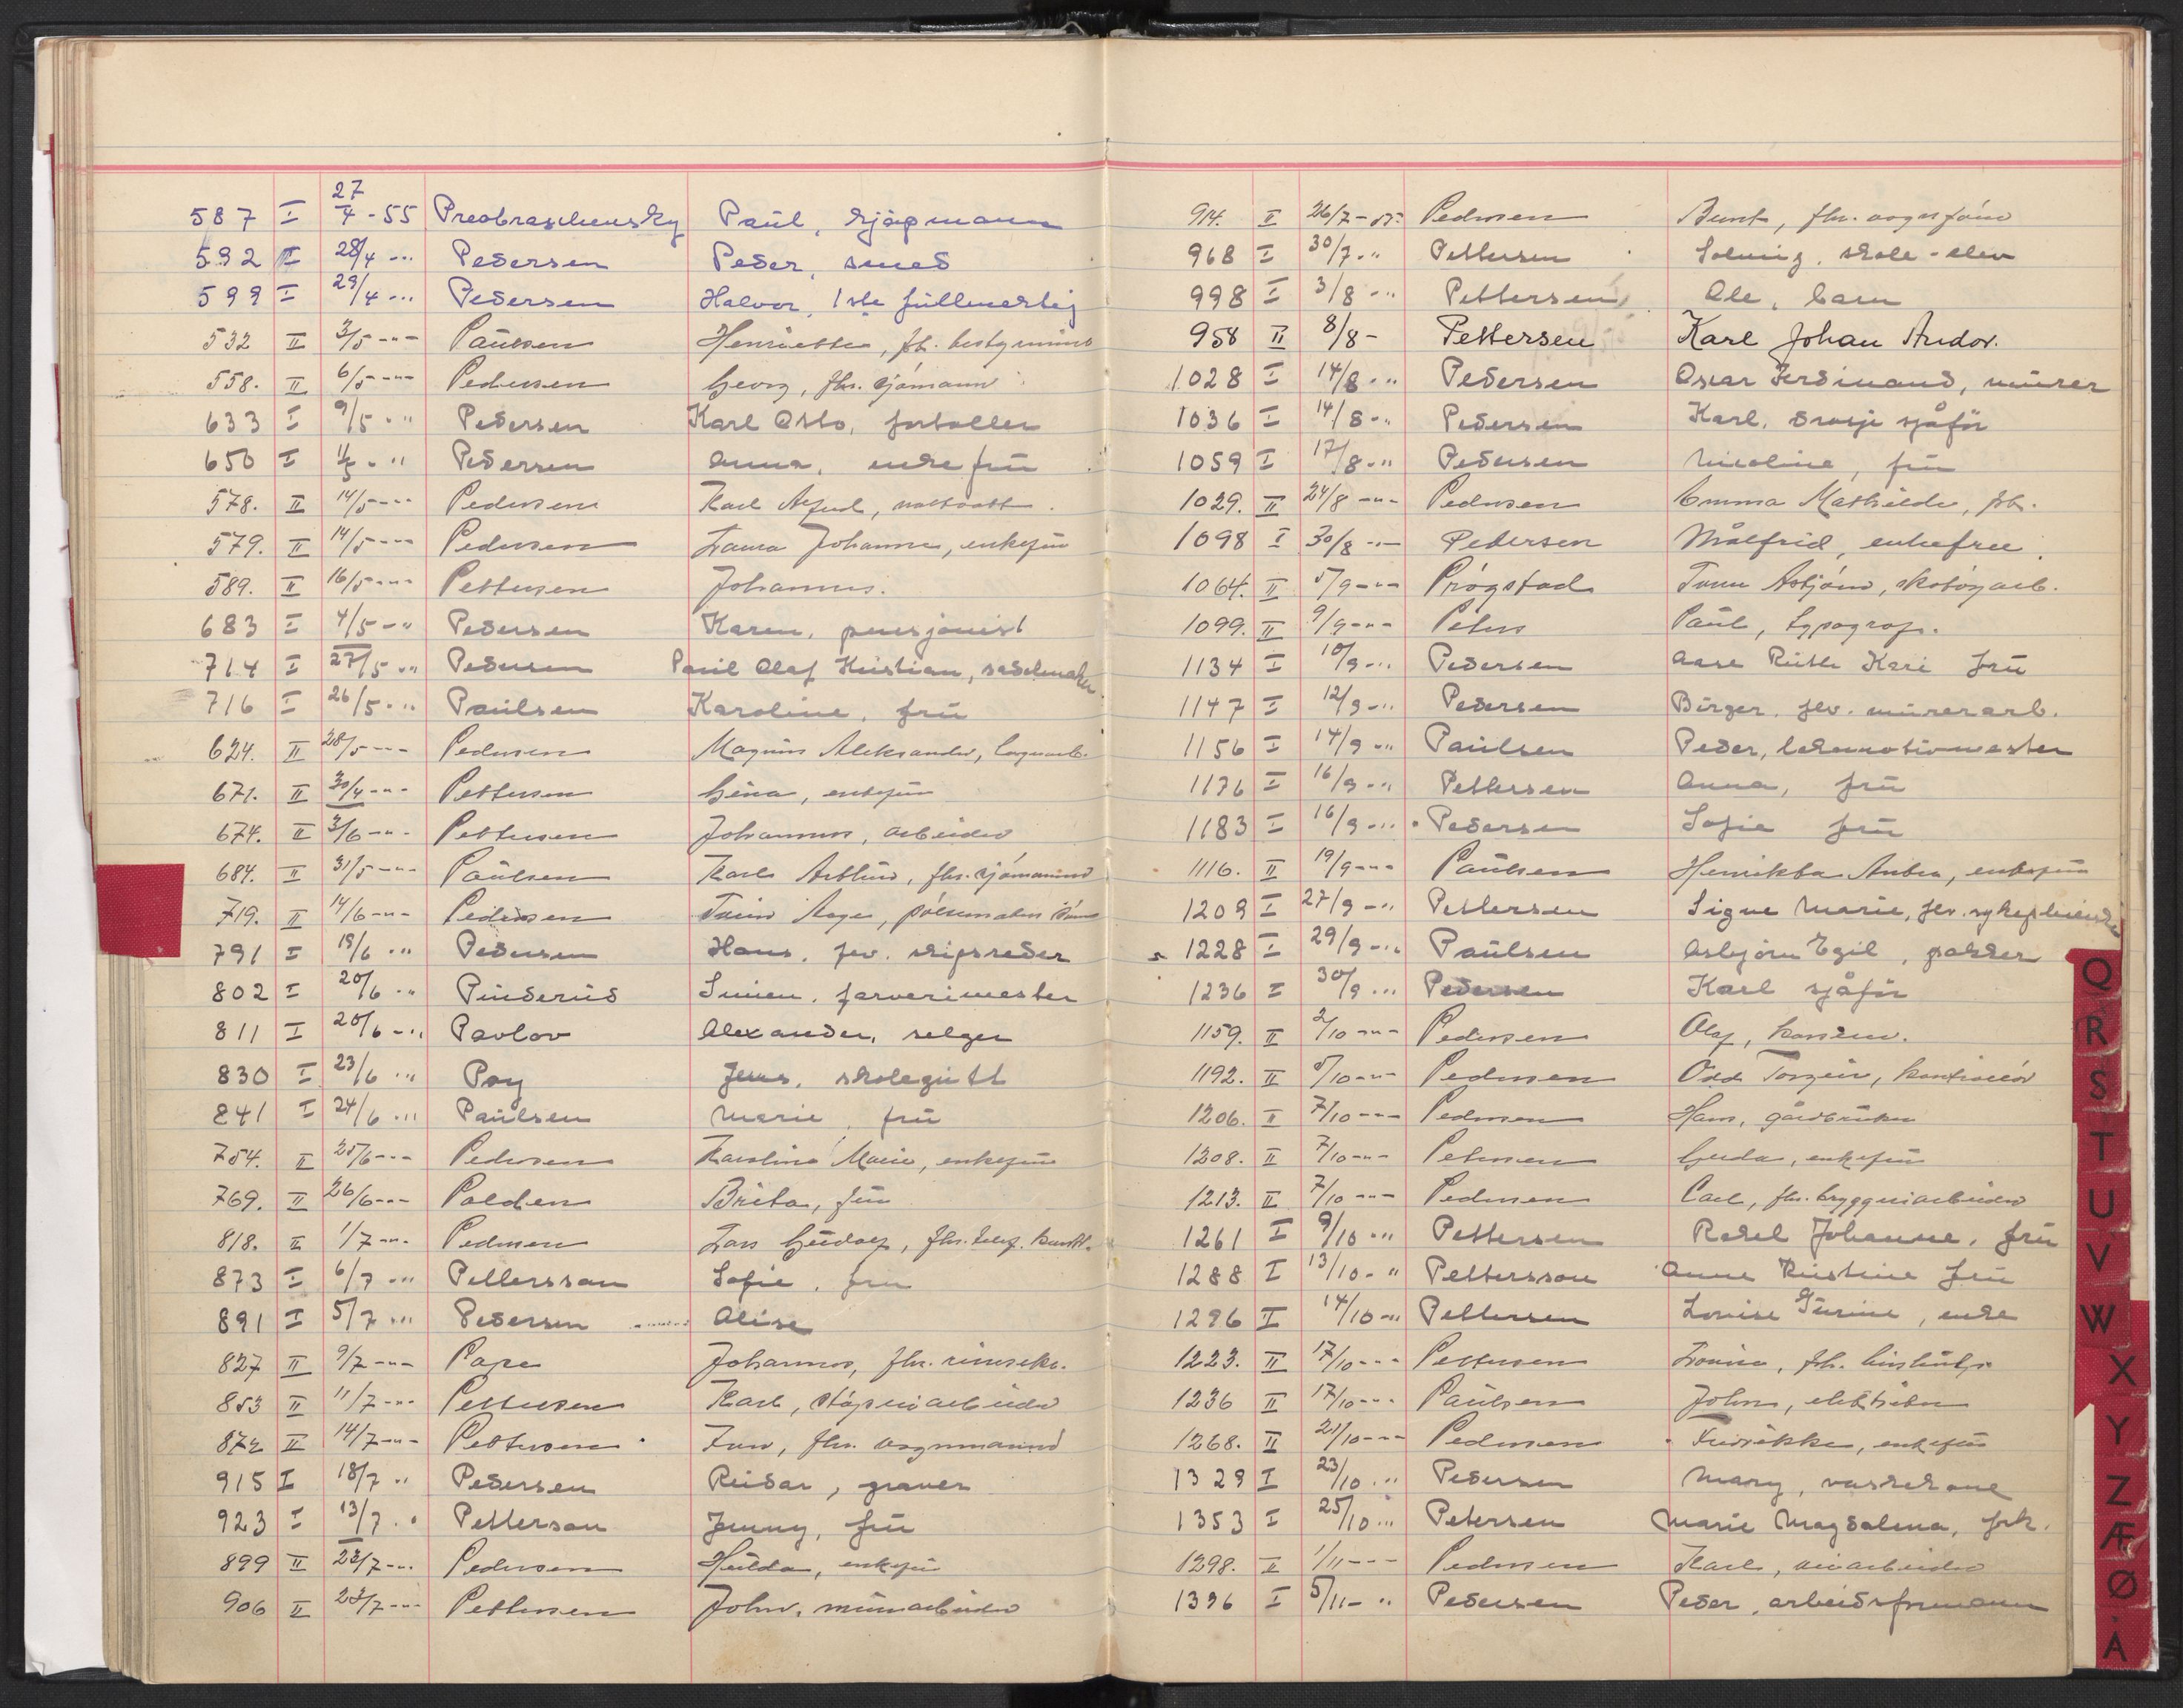 587 I 27/4 - 55 Preobraschensky Paul, kjøpmann
592 II 28/4 -.. Pedersen Peder, smed
599 I 29/4 -.. Pedersen Halvor, 1ste fullmektig
532 II 3/5 -"- Paulsen Henriette, fh. bestyrerinne
558. II 6/5 -"- Pedersen Georg, fhv. sjømann
633 I 9/5 -" Pedersen Karl Otto, forteller
650 I 11/5 -" Pedersen Anna, enkefru
578. II 14/5 -"- Pedersen Karl Alfred,
579. II 14/5 -"- Pedersen Laura Johanne, enkefru
589. II 16/5 -"- Pettersen Johannes.
683 I 4/5 -" Pedersen Karen, pensjonist
714 I 27/5 -" Pedersen Paul Olaf Kristian, sadelmaker
716 I 26/5 -" Paulsen Karoline, fru
624. II 28/5 -"- Pedersen Magnus Aleksander, lagerarb.
671. II 30/4 -"- Pettersen Gina, enkefru
674. II 3/6 -"- Pettersen Johannes, arbeider
684. II 31/5 -"- Paulsen Karl Arthur, fhv. sjømann
719. II 14/6 -"- Pedersen Aage, pølsemaker
791 I 19/6 -" Pedersen Hans, fev. skipsreder
802 I 20/6 -" Pinderud Simen, farverimester
811 I 20/6 -" Pavlov Alexander, selger
830 I 23/6 -" Poy Jens, skolegutt
841 I 24/6 -" Paulsen Marie, fru
754. II 25/6 -"- Pedersen Karoline Marie, enkefru
769. II 26/6 -"- Palden Brita, fru
818. II 1/7 -"- Pedersen Lars
873 I 6/7 -" Pettersson Sofie, fru
891 I 5/7 -" Pedersen Alise
827 II 9/7 -"- Pape Johannes, fhv.
853 II 11/7 -"- Pettersen Karl, støperiarbeider
872 II 14/7 -"- Pettersen fhv. vognmann
915 I 18/7 " Pedersen Reidar, graver
923 I 13/7 " Petterson Jenny, fru
899 II 23/7 -"- Pedersen Hulda, enkefru
906 II 23/7 -"- Pettersen John, murarbeider
914. II 26/7 - 55 Pedersen Bernt, fhv. vognfører
968 I 30/7 -" Pettersen Solveig, skole-elev
998 I 3/8 -" Pettersen Ole, barn
958 II 8/8 - Pettersen Karl Johan Andor.
1028 I 14/8 -" Pedersen Oscar Ferdinand, murer
1036 I 14/8 -" Pedersen Karl, drosje sjåfør
1059 I 17/8 -" Pedersen Nicoline, fru
1029. II 24/8 -"- Pedersen Emma Mathilde, frk.
1098 I 30/8 -"- Petersen Målfrid, enkefru
1064. II 5/9 -"- Prøgstad Asbjørn, skotøyarb.
1099. II 9/9 -"- Peters Paul, typograf.
1134 I 10/9 -" Pedersen Aase Ruth Kari fru
1147 I 12/9 -" Pedersen Birger, fev. murerarb.
1156 I 14/9 -" Paulsen Peder, lokomotivmester
1176 I 16/9 -" Pettersen Anna, fru
1183 I 16/9 -" Pedersen Sofie fru
1116. II 19/9 -"- Paulsen Henrikka Antea, enkefru
1209 I 27/9 -" Pettersen Signe Marie, fev. sykepleierske
1228 I 29/9 -" Paulsen Asbjørn Egil, pakker
1236 I 30/9 -" Pedersen Karl sjåfør
1159. II 2/10 -"- Pedersen Olaf,
1192. II 5/10 -"- Pedersen Odd Torgeir, kontrollør
1206. II 7/10 -"- Pedersen Hans, gårdbruker
1208. II 7/10 -"- Petersen Gerda, enkefru
1213. II 7/10 -"- Pedersen Carl, fhv. bryggeriarbeider
1261 I 9/10 -" Pettersen Rakel Johanne, fru
1288 I 13/10 -" Pettersson Anne Kristine fru
1296 I 14/10 -" Pettersen Louise Turine, enke
1223. II 17/10 -"- Pettersen Lovise, fh.
1236 II 17/10 -"- Paulsen John, elektriker
1268. II 21/10 -"- Pedersen Fredrikke, enkefru
1329 I 23/10 -" Pedersen Mary, vaskekone
1353 I 25/10 -" Petersen Marie Magdalena, frk.
1298. II 1/11 -"- Pedersen Karl, veiarbeider
1396 I 5/11 -" Pedersen Peder, arbeidsformann
Q
R
S
T
U
V
W
X
Y
Z
Æ
Ø
Å